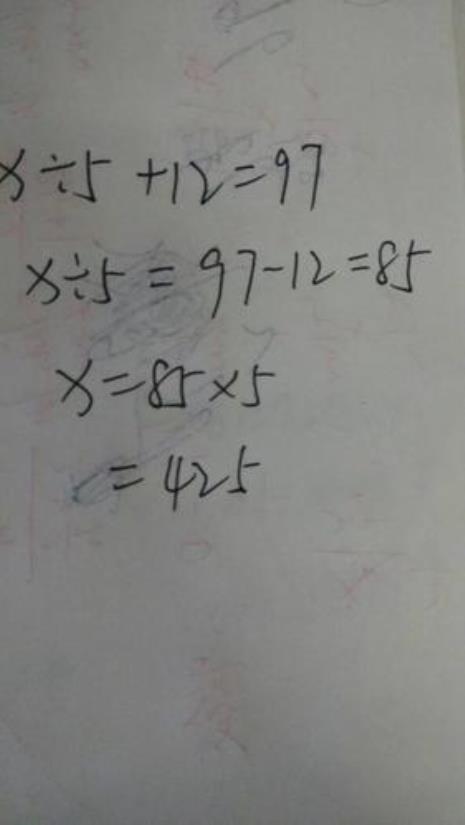 x÷5+12=97
x÷5=97-12=85
x=85×5
=425